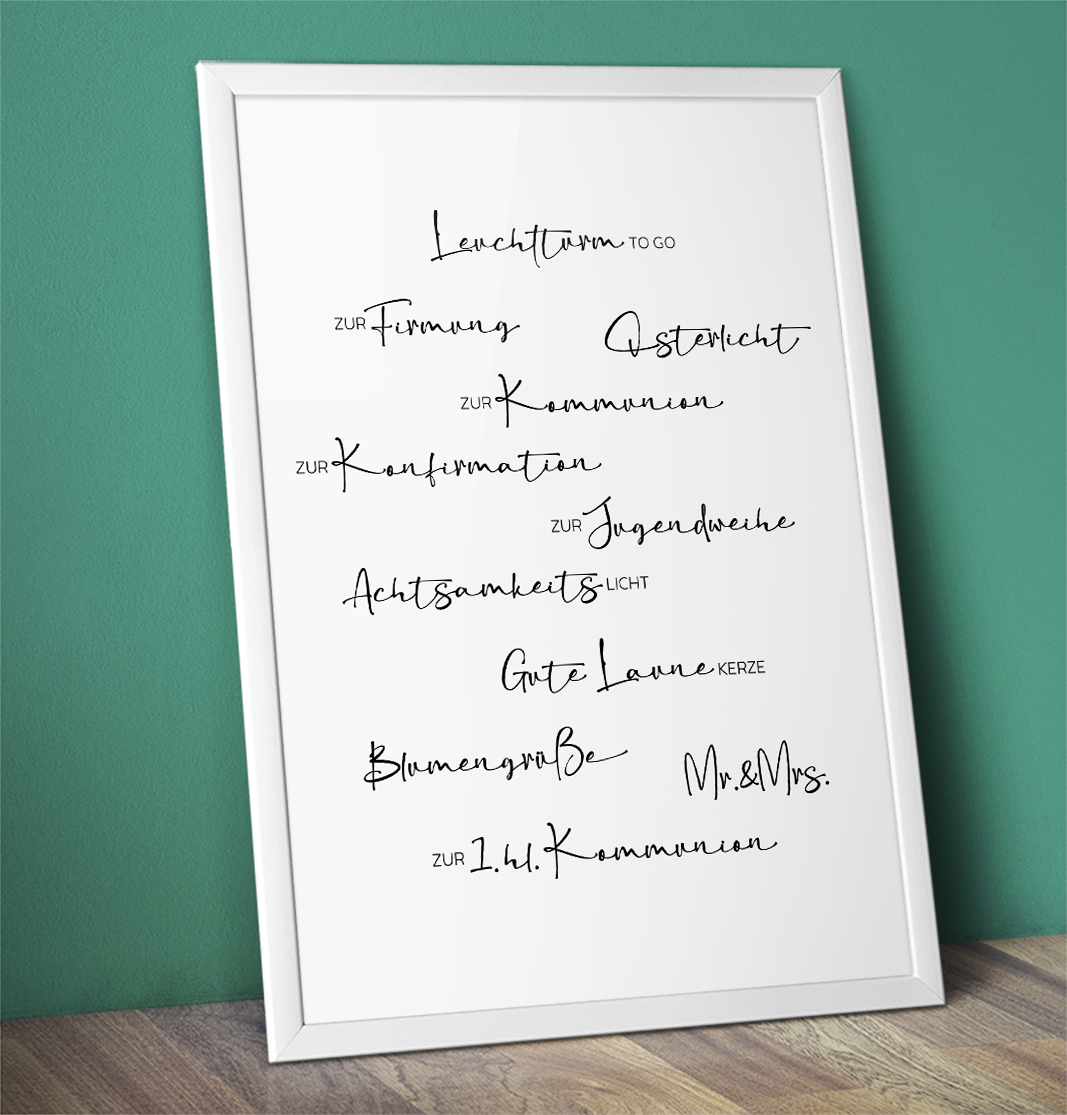 Leuchtturm TO GO
ZUR Firmung
Osterlicht
ZUR Kommunion
ZUR Konfirmation
ZUR Jugendweihe
Achtsamkeits LICHT
Gute Laune KERZE
Blumengrüße
Mr.&Mrs.
ZUR 1.hl. Kommunion